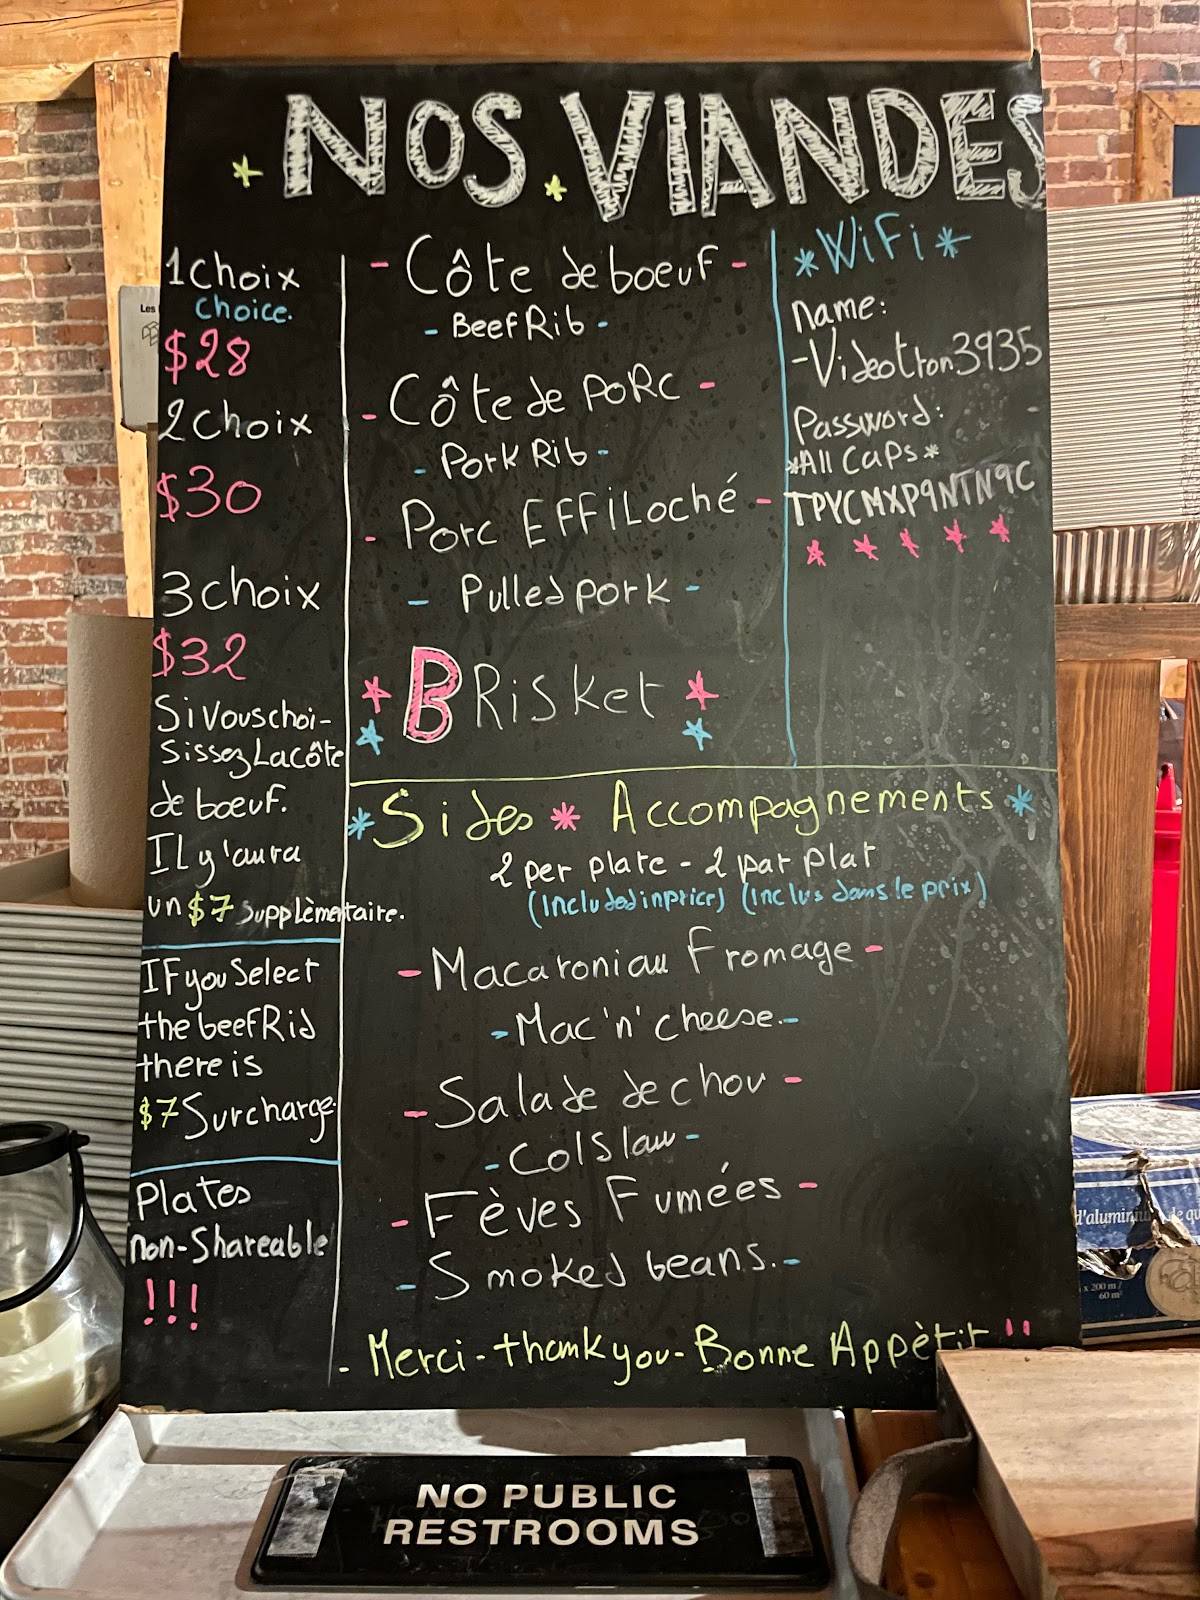 NOS VIANDES
1 choix
choice.
$28
2 choix
$30
3 choix
$32
Si vous choi-
sissez La côte
de boeuf.
IL y'aura
un $7 supplèmentaire.
IF you Select
the beef Rib
there is
$7 Surcharge.
Plates
non-Shareable
!!!
- Côte de boeuf -
- Beef Rib -
- Côte de PoRc -
- Pork Rib -
- Porc EFFiLoché -
- Pulled pork -
BRisket
*WiFi*
name:
-Videotron3935
Password:
*All Caps*
TPYCMXP9NTN9C
*Sides * Accompagnements *
2 per plate - 2 par plat
(Included in price) (Inclus dans le prix)
- Macaroni au Fromage -
- Mac 'n' cheese. -
- Salade de chou -
- Colslaw -
- Fèves Fumées -
- Smoked beans. -
- Merci - thank you - Bonne Appètit !!
NO PUBLIC
RESTROOMS
Les
d'aluminium de qu
x 200 m /
60 m²